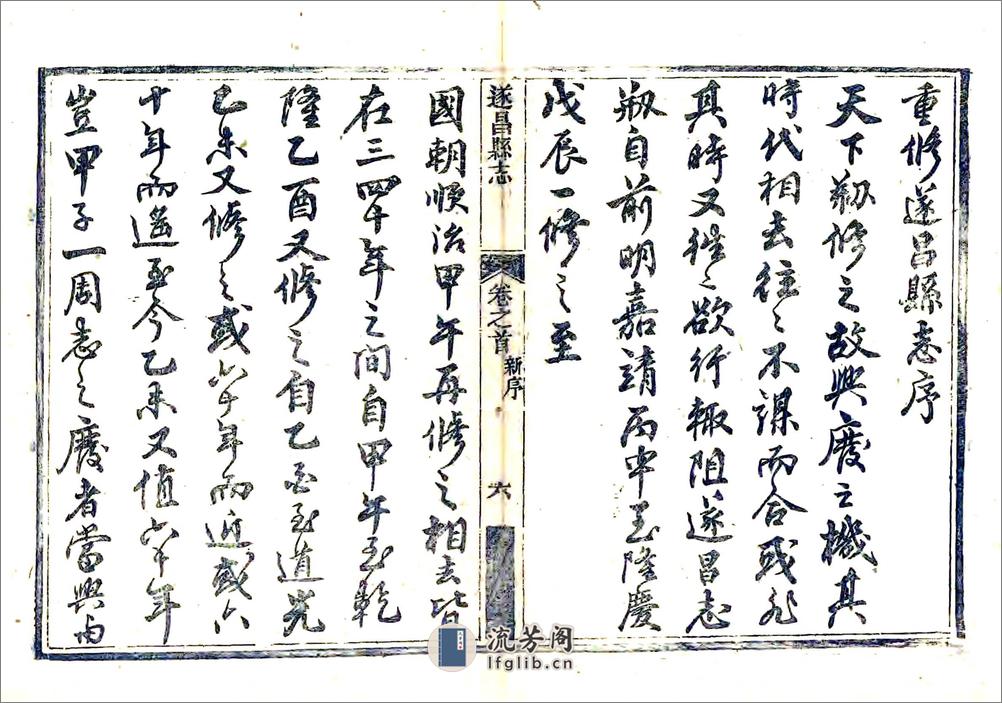 重修遂昌縣志序
天下剏修之故興廢之機其
時代相去往〻不謀而合或非
其時又往〻欲行輙阻遂昌志
剏自前明嘉靖丙申至隆慶
戊辰一修之至
遂昌縣志
卷之首 新序
六
國朝順治甲午再修之相去皆
在三四十年之間自甲午至乾
隆乙酉又修之自乙酉至道光
乙未又修之或六十年而近或六
十年而遥至今乙未又值六十年
豈甲子一周志之廢者當興由
流芳阁
lfglib.cn